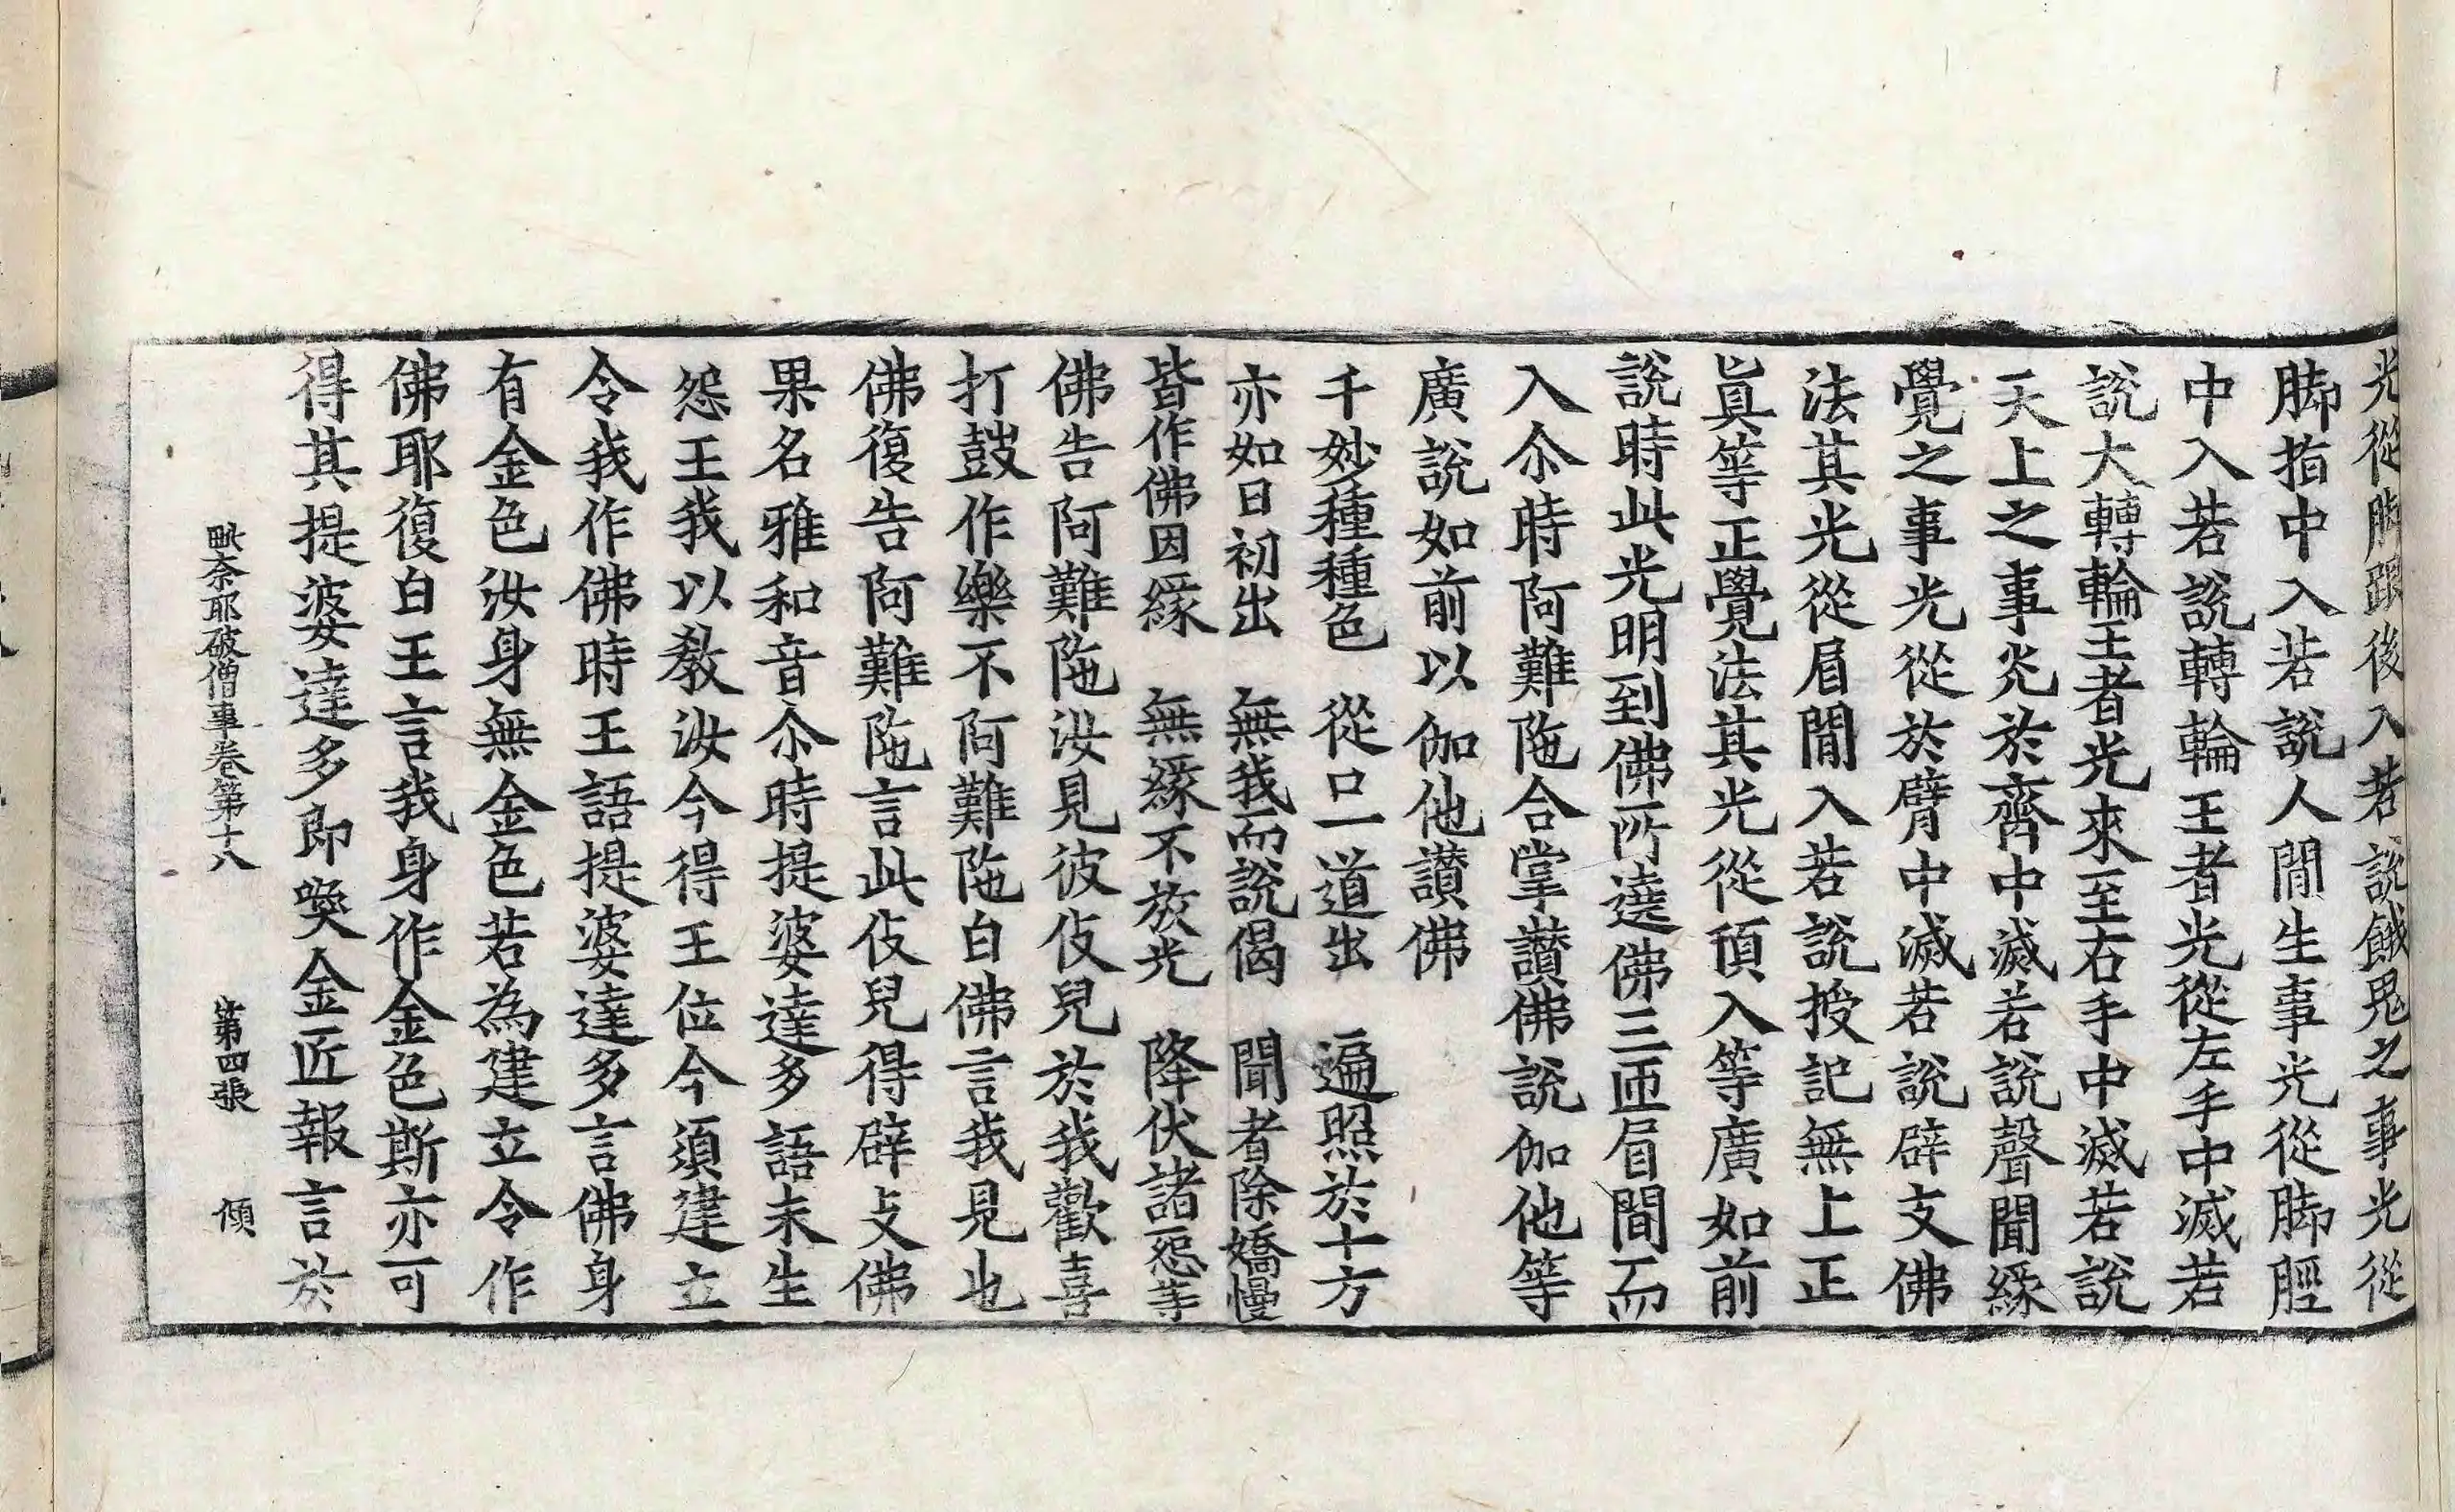 光從脚跟後入若說餓鬼之事光從
脚指中入若說人間生事光從脚脛
中入若說轉輪王者光從左手中滅若
說大轉輪王者光來至右手中滅若說
天上之事光於齊中滅若說聲聞緣
覺之事光從於臂中滅若說辟支佛
法其光從眉間入若說授記無上正
真等正覺法其光從頂入等廣如前
說時此光明到佛所遶佛三匝眉間而
入尒時阿難陁合掌讃佛說伽他等
廣說如前以伽他讃佛
千妙種種色　從口一道出　遍照於十方
亦如日初出　無我而說偈　聞者除憍慢
皆作佛因緣　無緣不放光　降伏諸惡等
佛告阿難陁汝見彼伎兒於我歡喜
打鼓作樂不阿難陁白佛言我見也
佛復告阿難陁言此伎兒得辟支佛
果名雅和音尒時提婆達多語未生
怨王我以教汝今得王位今須建立
令我作佛時王語提婆達多言佛身
有金色汝身無金色若為建立令作
佛耶復白王言我身作金色斯亦可
得其提婆達多即喚金匠報言於
毗奈耶破僧事卷第十八　第四張　傾